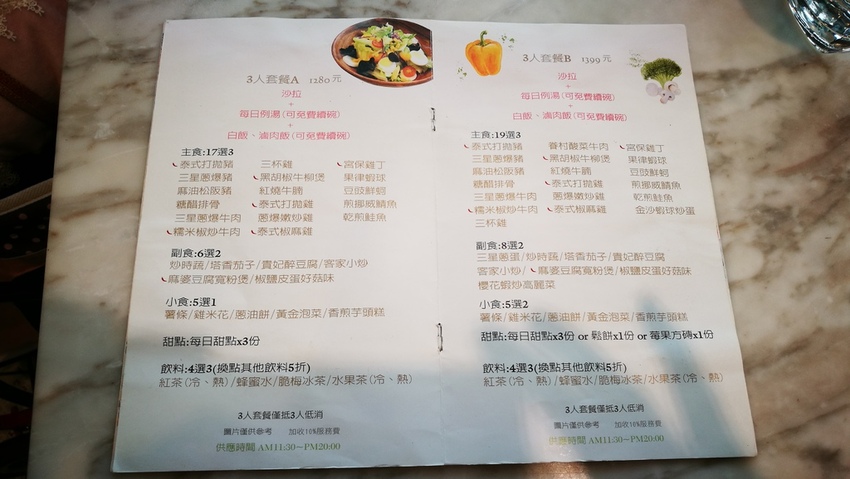 3人套餐A 1280元
沙拉
+
每日例湯(可免費續碗)
+
白飯、滷肉飯(可免費續碗)
主食:17選3
泰式打拋豬 三杯雞 宮保雞丁
三星蔥爆豬 黑胡椒牛柳煲 果律蝦球
麻油松阪豬 紅燒牛腩 豆豉鮮蚵
糖醋排骨 泰式打拋雞 煎挪威鯖魚
三星蔥爆牛肉 蔥爆嫩炒雞 乾煎鮭魚
糯米椒炒牛肉 泰式椒麻雞
副食:6選2
炒時蔬/塔香茄子/貴妃醉豆腐/客家小炒
麻婆豆腐寬粉煲/椒鹽皮蛋好菇味
小食:5選1
薯條/雞米花/蔥油餅/黃金泡菜/香煎芋頭糕
甜點:每日甜點x3份
飲料:4選3(換點其他飲料5折)
紅茶(冷、熱)/蜂蜜水/脆梅冰茶/水果茶(冷、熱)
3人套餐僅抵3人低消
圖片僅供參考 加收10%服務費
供應時間 AM11:30~PM20:00
3人套餐B 1399元
沙拉
+
每日例湯(可免費續碗)
+
白飯、滷肉飯(可免費續碗)
主食:19選3
泰式打拋豬 眷村酸菜牛肉 宮保雞丁
三星蔥爆豬 黑胡椒牛柳煲 果律蝦球
麻油松阪豬 紅燒牛腩 豆豉鮮蚵
糖醋排骨 泰式打拋雞 煎挪威鯖魚
三星蔥爆牛肉 蔥爆嫩炒雞 乾煎鮭魚
糯米椒炒牛肉 泰式椒麻雞 金沙蝦球炒蛋
三杯雞
副食:8選2
三星蔥蛋/炒時蔬/塔香茄子/貴妃醉豆腐
客家小炒/麻婆豆腐寬粉煲/椒鹽皮蛋好菇味
櫻花蝦炒高麗菜
小食:5選2
薯條/雞米花/蔥油餅/黃金泡菜/香煎芋頭糕
甜點:每日甜點x3份 or 鬆餅x1份 or 莓果方磚x1份
飲料:4選3(換點其他飲料5折)
紅茶(冷、熱)/蜂蜜水/脆梅冰茶/水果茶(冷、熱)
3人套餐僅抵3人低消
圖片僅供參考 加收10%服務費
供應時間 AM11:30~PM20:00